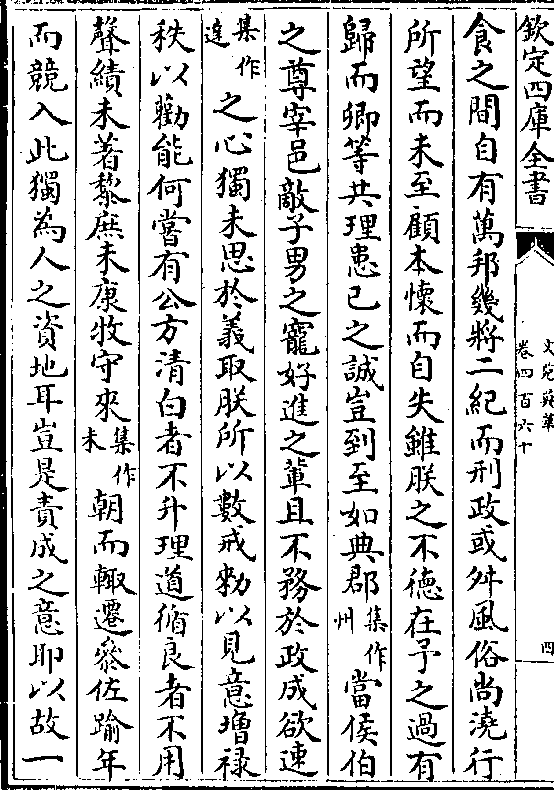 欽定四庫全書
文苑英華
卷四百六十
四
食之間自有萬邦幾將二紀而刑政或舛風俗尚澆行
所望而未至顧本懷而自失雖朕之不德在予之過有
歸而卿等共理患已之誠豈到至如典郡集作州當侯伯
之尊宰邑敵子男之寵好進之軰且不務於政成欲速
集作達之心獨未思於義取朕所以數戒勑以見意增禄
秩以勸能何嘗有公方清白者不升理道循良者不用
聲績未著黎庶未康牧守來集作未朝而輙遷叅佐踰年
而競入此獨為人之資地耳豈是責成之意耶以故一